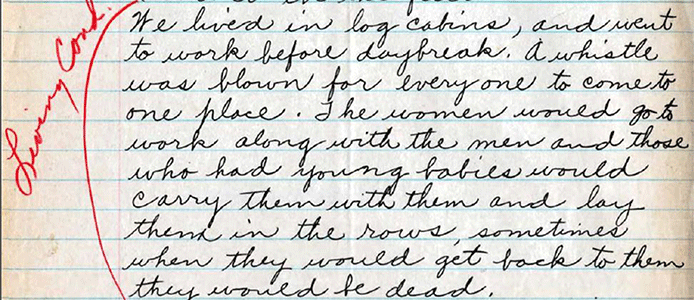 Living Cond.
We lived in log cabins, and went
to work before daybreak. A whistle
was blown for everyone to come to
one place. The women would go to
work along with the men and those
who had young babies would
carry them with them and lay
them in the rows, sometimes
when they would get back to them
they would be dead.